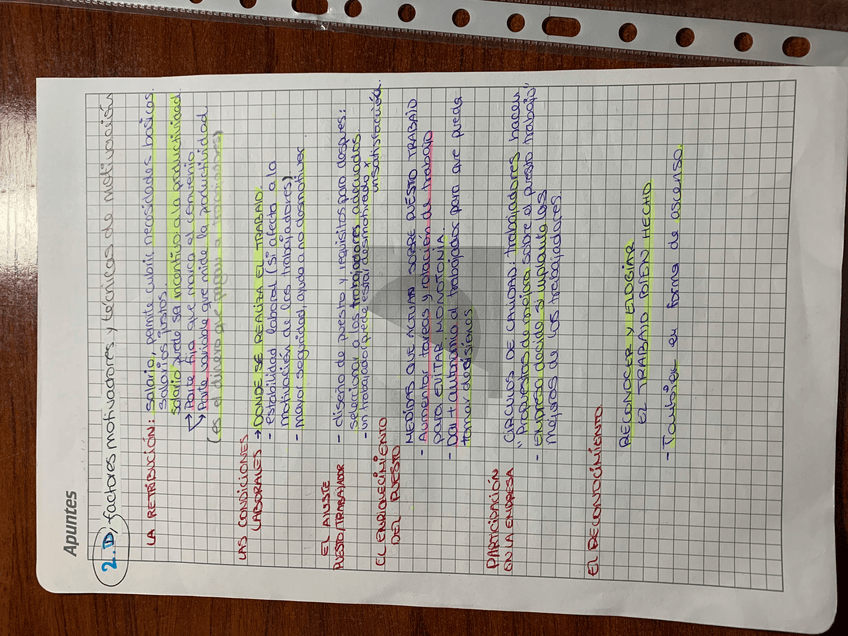 Apuntes
2.D, factores motivadores y técnicas de motivación
LA RETRIBUCIÓN: Salario, permite cubrir necesidades basicas.
Salarios justos.
salario puede ser incentivo a la productividad
→ Parte fija que marca el convenio
↘ Parte variable que mide la productividad
(es el dinero que pagan a trabajadores)
LAS CONDICIONES
LABORALES → DONDE SE REALIZA EL TRABAJO.
- estabilidad laboral (si afecta a la
motivación de los trabajadores)
- mayor seguridad, ayuda a no desmotivar
EL AJUSTE
PUESTO/TRABAJADOR
- diseño de puesto y requisitos para despues:
seleccionar a los trabajadores adecuados.
- un trabajador puede estar desmotivado x
insatisfacción.
EL ENRIQUECIMIENTO
DEL PUESTO
MEDIDAS QUE ACTUAN SOBRE PUESTO TRABAJO
- Aumentar tareas y rotación de trabajo
para EVITAR MONOTONIA.
- Dar + autonomia al trabajador para que pueda
tomar decisiones
PARTICIPACIÓN
EN LA EMPRESA
CIRCULOS DE CALIDAD: trabajadores hacen
"Propuestas de mejora sobre el puesto trabajo"
- empresa decide si implanta las
mejoras de los trabajadores.
EL RECONOCIMIENTO.
RECONOCER Y ELOGIAR
EL TRABAJO BIEN HECHO.
- También en forma de ascenso.